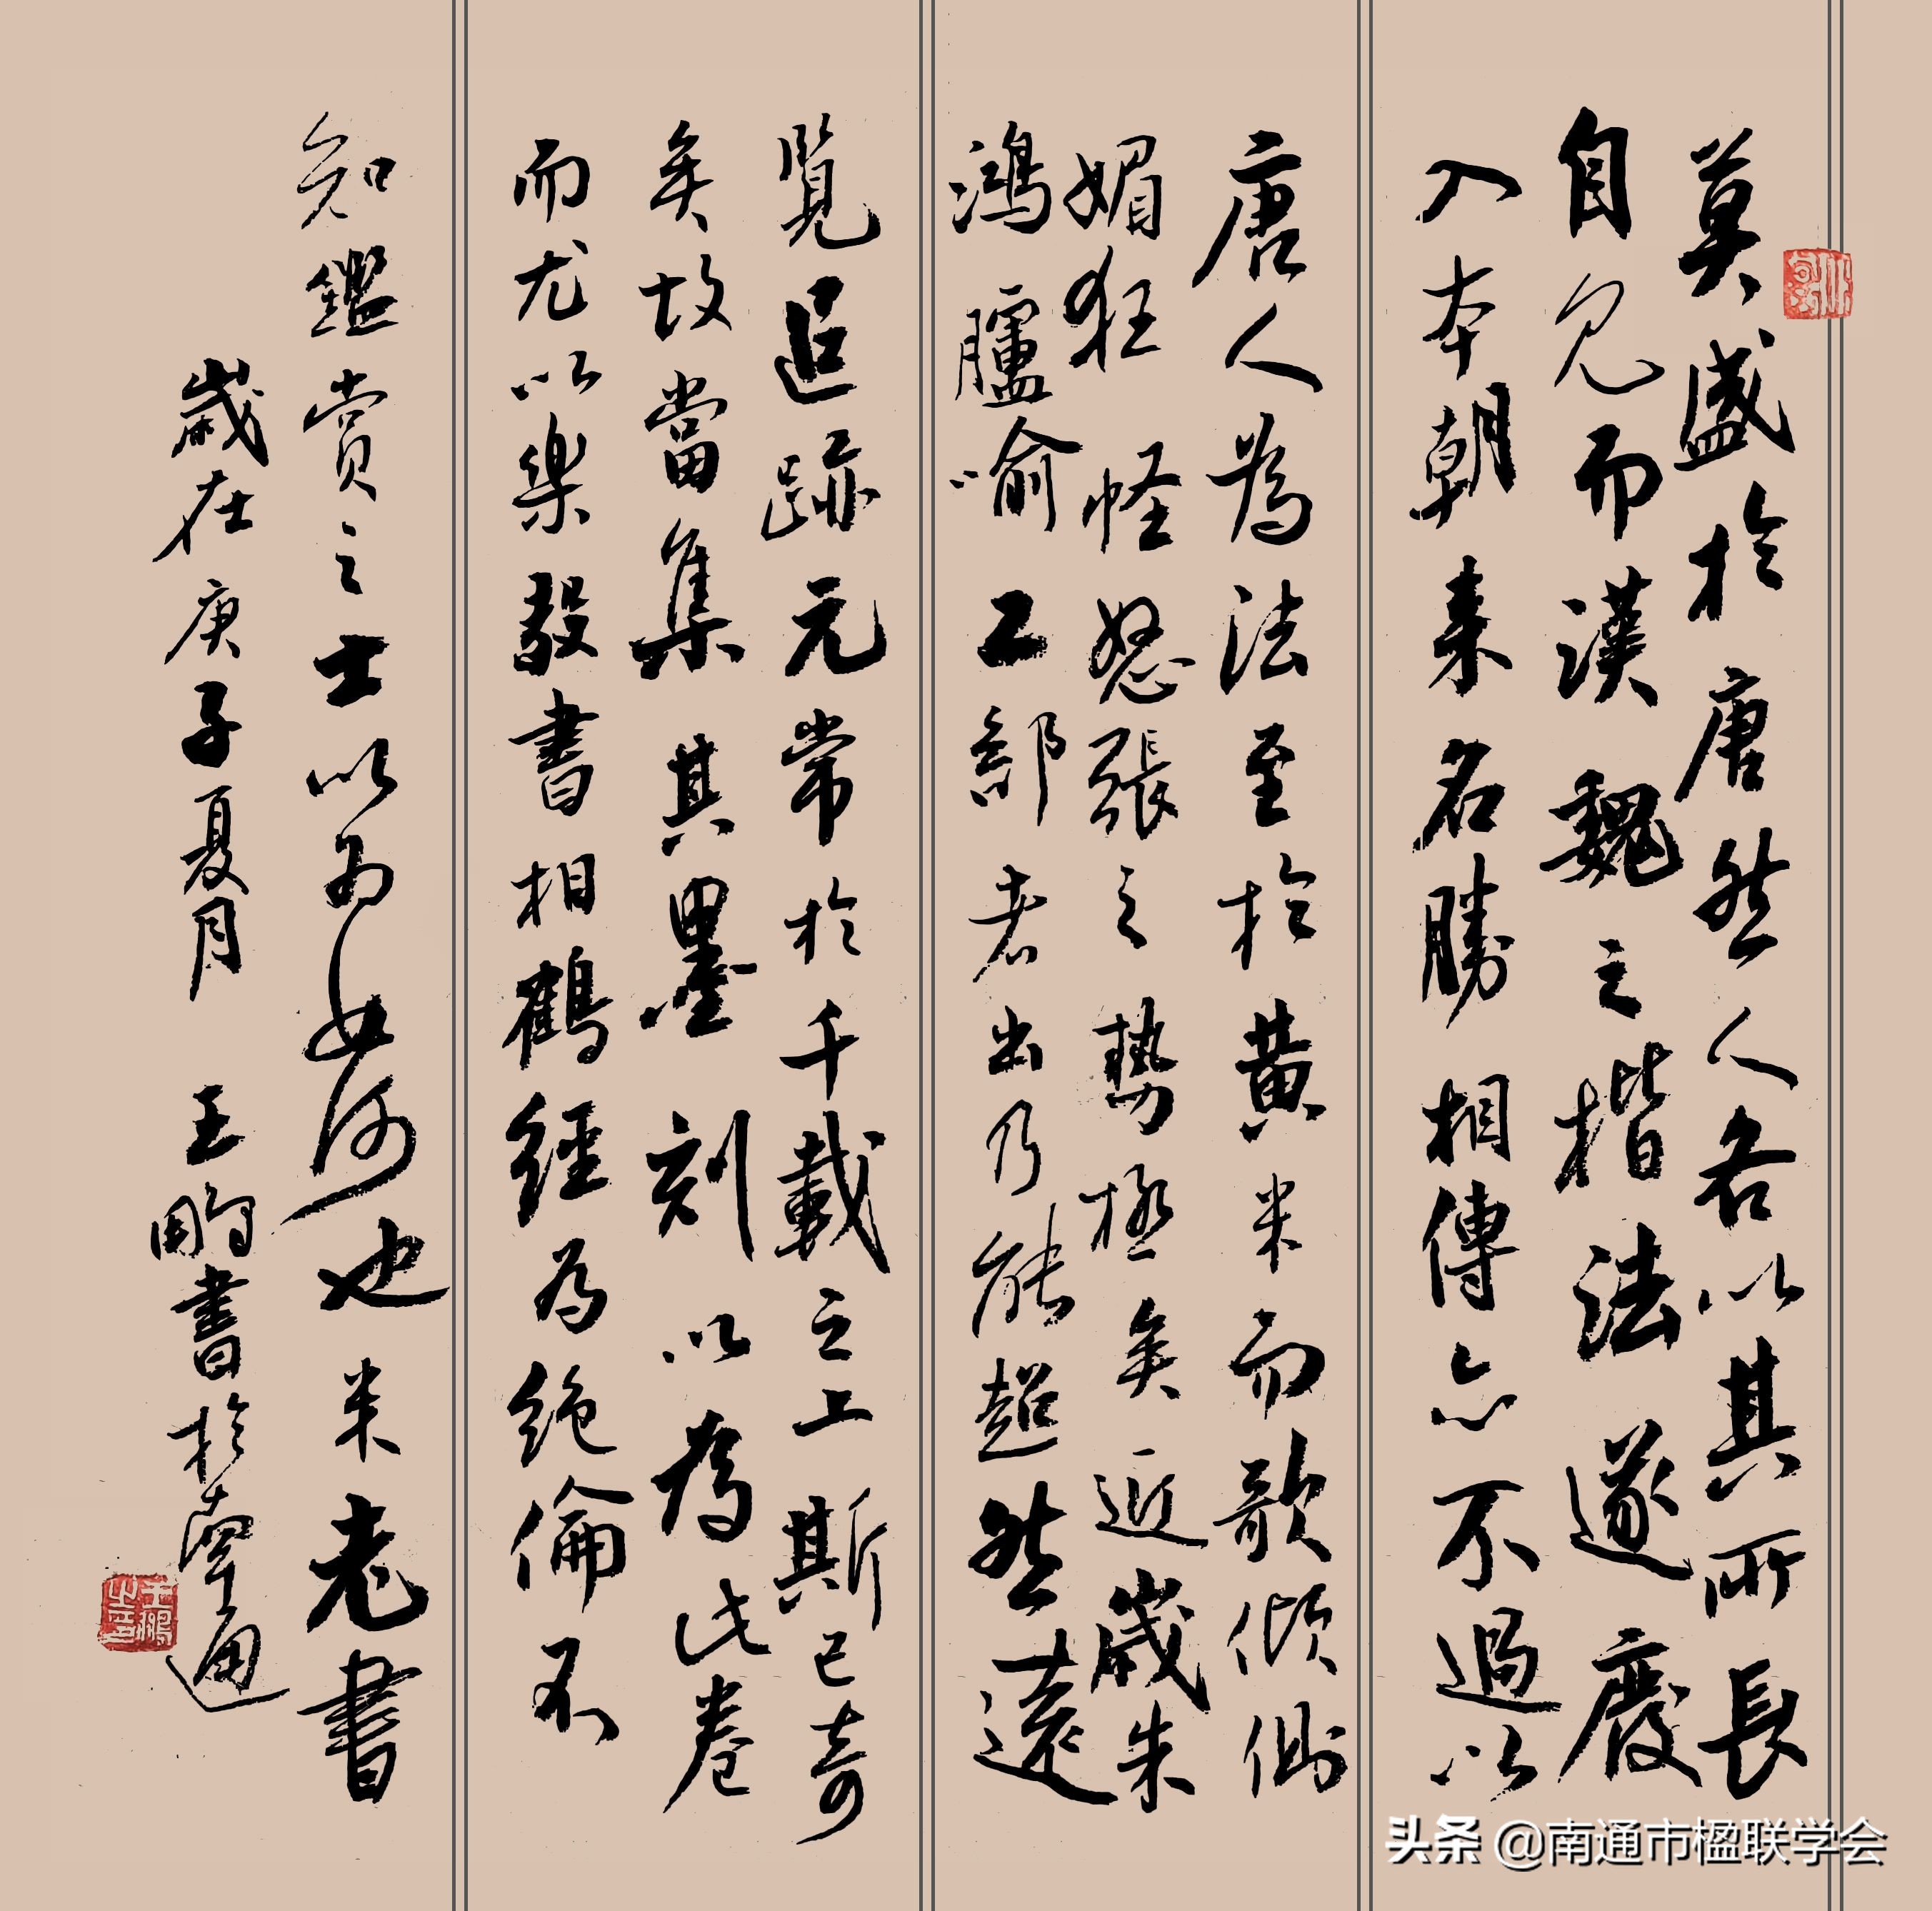 莫盛於唐然人各以其所長
自見而漢魏之楷法遂廢
入本朝来名勝相傳亦不過以
唐人為法至於黄米而歌傾側
媚狂怪怒張之勢極矣近歲朱
鴻臚喻工部者出乃能超然遠
覧追跡元常於千載之上斯已奇
矣故當集其墨刻以為此卷
而尤以樂毅書相鶴經為絶倫不
知鑑賞之士以為如何也米老書
歲在庚子夏月 王鵬書於南通
王鵬之印
头条 @南通市楹联学会